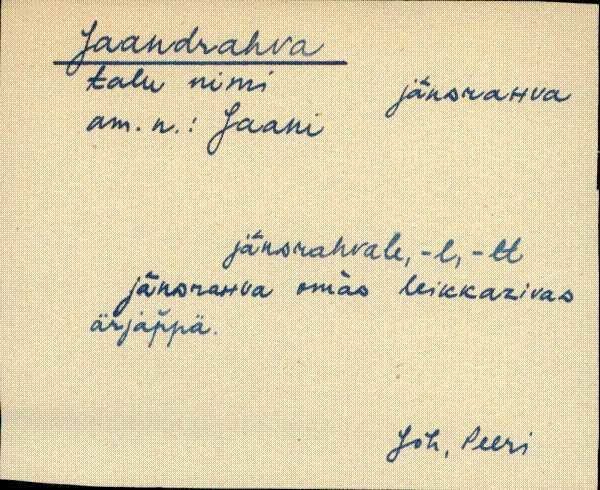 Jaandrahva
talu nimi jänsraHva
am. n.: Jaani
jänsrahvale, -l, -lt
jänsraHva omas leikkazivas
ärjäp̆pä.
Joh, Peeri